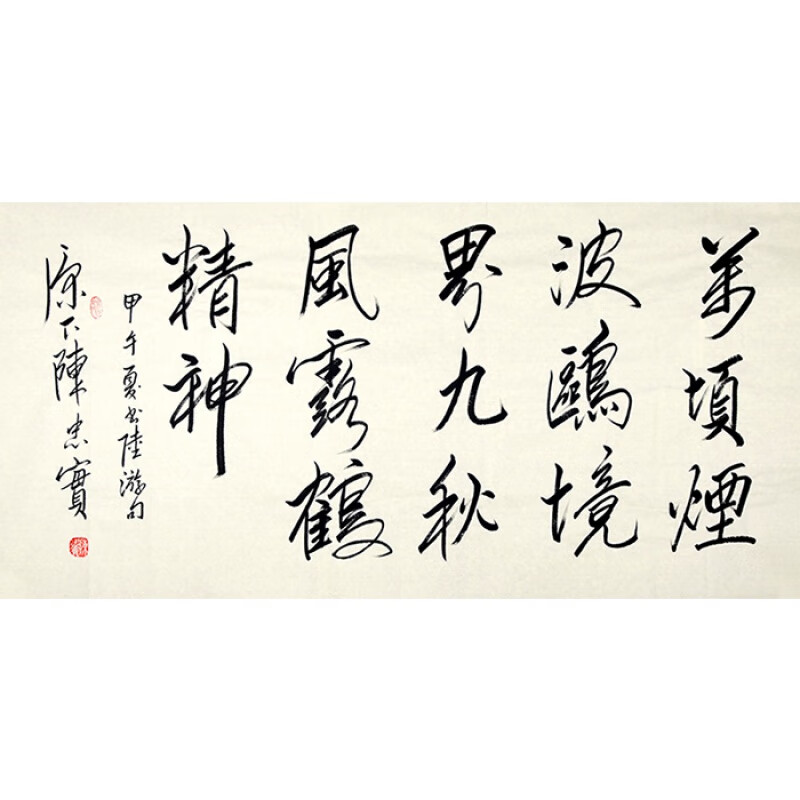 萬頃煙
波鷗境
界九秋
風露鶴
精神
甲午夏书陸游句
原下陳忠實